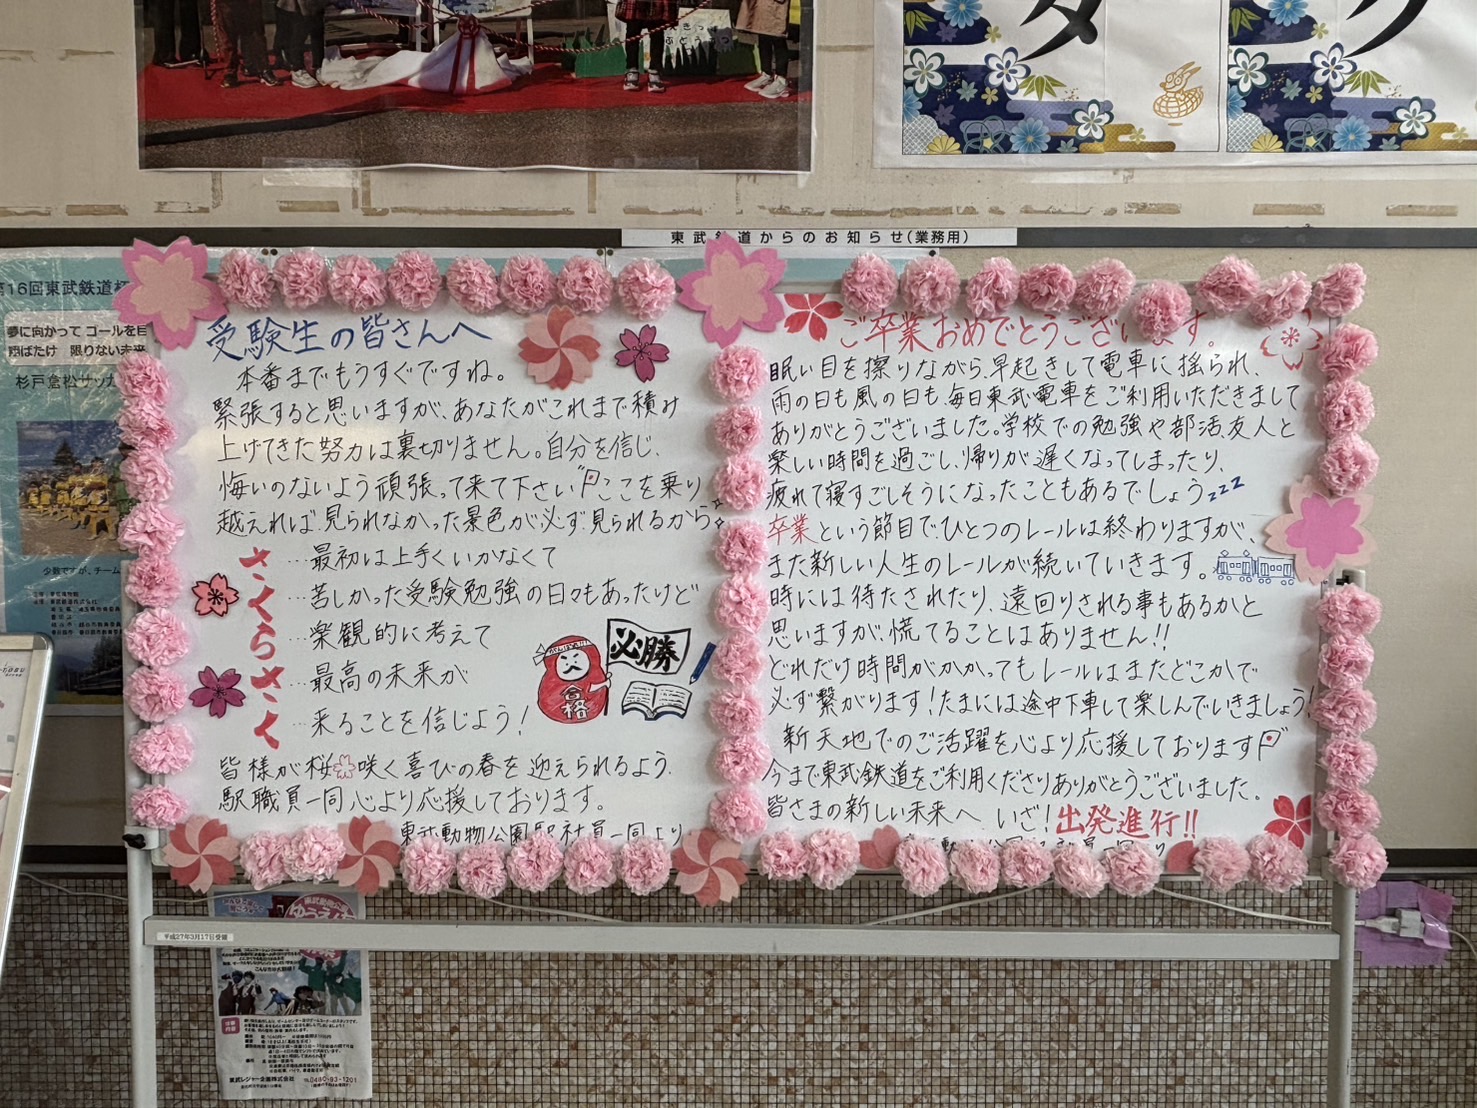 きっ
ぶどう
タ
ク
東武鉄道からのお知らせ(業務用)
第16回東武鉄道杯
夢に向かって ゴールを目
翔ばたけ 限りない未来
杉戸倉松サッカ
少数ですが、チーム
受験生の皆さんへ
本番までもうすぐですね。
緊張すると思いますが、あなたがこれまで積み
上げてきた努力は裏切りません。自分を信じ、
悔いのないよう頑張って来て下さい ここを乗り
越えれば、見られなかった景色が必ず見られるから。
さくらさく
…最初は上手くいかなくて
…苦しかった受験勉強の日々もあったけど
…楽観的に考えて
…最高の未来が
…来ることを信じよう!
がんばれ!!
必勝
合格
皆様が桜咲く喜びの春を迎えられるよう、
駅職員一同心より応援しております。
東武動物公園駅社員一同より
ご卒業おめでとうございます。
眠い目を擦りながら、早起きして電車に揺られ、
雨の日も風の日も、毎日東武電車をご利用いただきまして
ありがとうございました。学校での勉強や部活、友人と
楽しい時間を過ごし、帰りが遅くなってしまったり、
疲れて寝すごしそうになったこともあるでしょう zzz
卒業という節目で、ひとつのレールは終わりますが、
また新しい人生のレールが続いていきます。
時には待たされたり、遠回りされる事もあるかと
思いますが、慌てることはありません!!
どれだけ時間がかかってもレールはまたどこかで
必ず繋がります!たまには途中下車して楽しんでいきましょう!
新天地でのご活躍を心より応援しております
今まで東武鉄道をご利用くださりありがとうございました。
皆さまの新しい未来へ いざ!出発進行!!
平成27年3月17日受領
東武レジャー企画株式会社
0480-93-1201